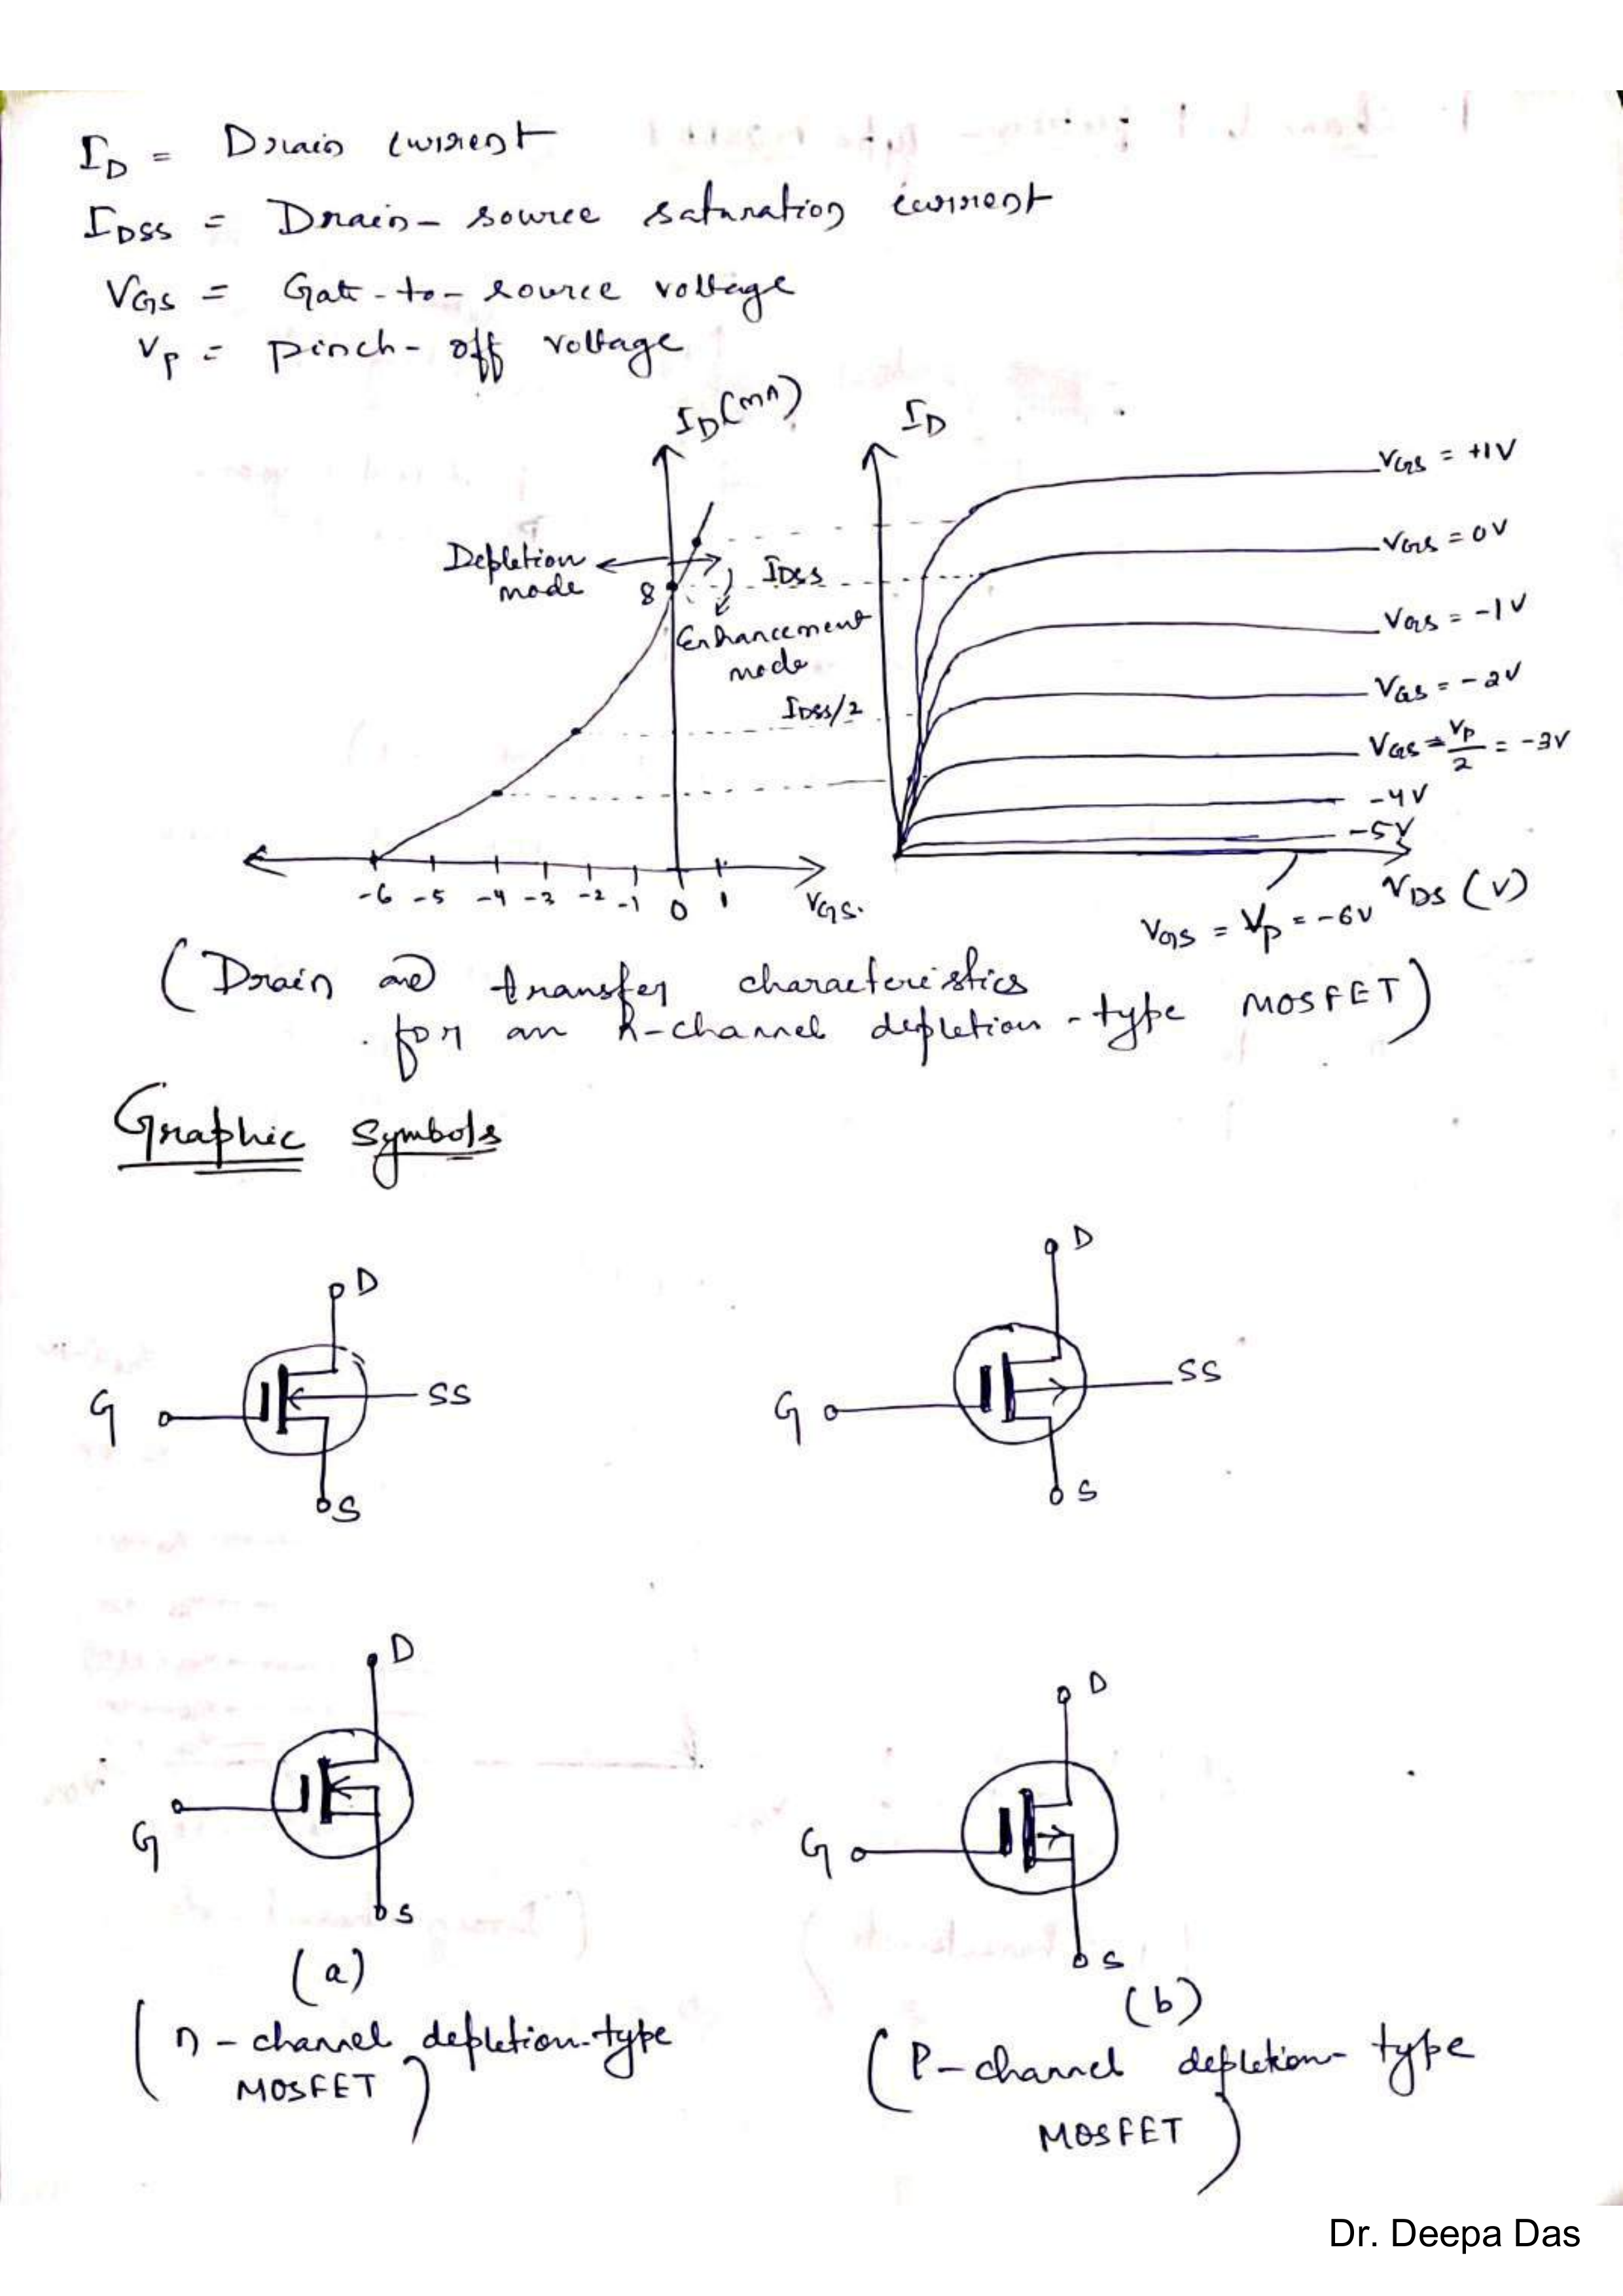 I_D = Drain current
I_DSS = Drain-source saturation current
V_GS = Gate-to-source voltage
V_P = pinch-off voltage
I_D (mA)
I_D
V_GS = +1V
V_GS = 0V
Depletion
mode
I_DSS
8
V_GS = -1V
Enhancement
mode
V_GS = -2V
I_DSS/2
V_GS = V_P/2 = -3V
-4V
-5V
-6 -5 -4 -3 -2 -1 0 1
V_GS.
V_DS (V)
V_GS = V_P = -6V
(Drain and transfer characteristics
for an n-channel depletion-type MOSFET)
Graphic Symbols
D
G
SS
S
D
G
SS
S
D
G
S
(a)
(n-channel depletion-type
MOSFET)
D
G
S
(b)
(P-channel depletion-type
MOSFET)
Dr. Deepa Das